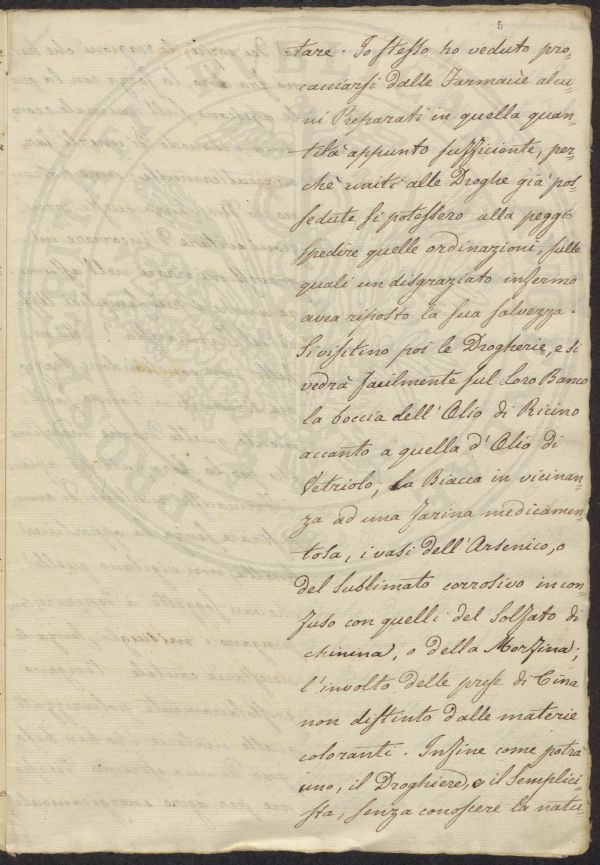 5
tare. Io stesso ho veduto pro-
cacciarsi dalle Farmacie alcu-
ni Preparati in quella quan-
tità appunto sufficiente, per-
chè uniti alle Droghe già pos-
sedute si potessero alla peggio
spedire quelle ordinazioni, sulle
quali un disgraziato infermo
avea riposto la sua salvezza.
Si visitino poi le Drogherie, e si
vedrà facilmente sul loro Banco
la boccia dell'Olio di Ricino
accanto a quella d'Olio di
Vetriolo; la Biacca in vicinan-
za ad una farina medicamen-
tosa, i vasi dell'Arsenico, o
del sublimato corrosivo in con-
fuso con quelli del Solfato di
chinina, o della Morfina;
l'involto delle prese di Cina
non distinto dalle materie
coloranti. Infine come potrà
uno, il Droghiere, o il Semplici-
sta, senza conoscere la natu-